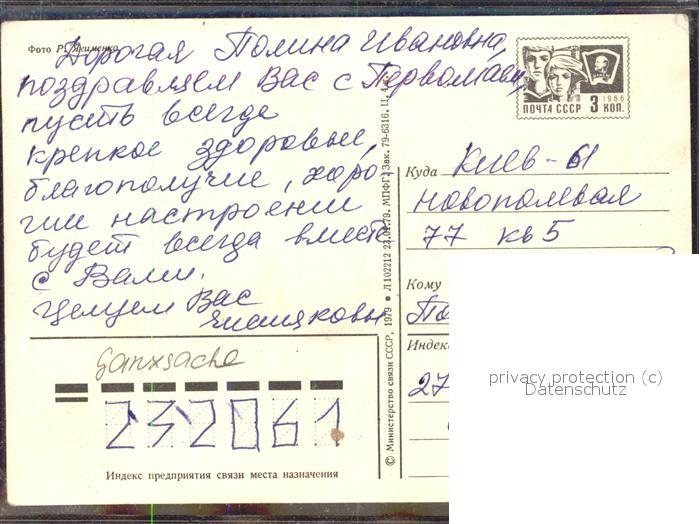 Фото Р. Якименко
Дорогая Полина Ивановна,
поздравляем Вас с Первомаем,
пусть всегда
крепкое здоровье,
благополучие, хоро
шии настроении
будет всегда вместе
с Вами.
Целуем Вас
ПОЧТА СССР 3 КОП.
1966
Куда Киев-61
Новополевая
77 кв 5
Кому
По
Индекс
27
Ganzsache
232061
Индекс предприятия связи места назначения
© Министерство связи СССР, 1979 ● Л102212 23.01.79. МПФГ. Зак. 79-6316. Ц. 4 к.
privacy protection (c)
Datenschutz